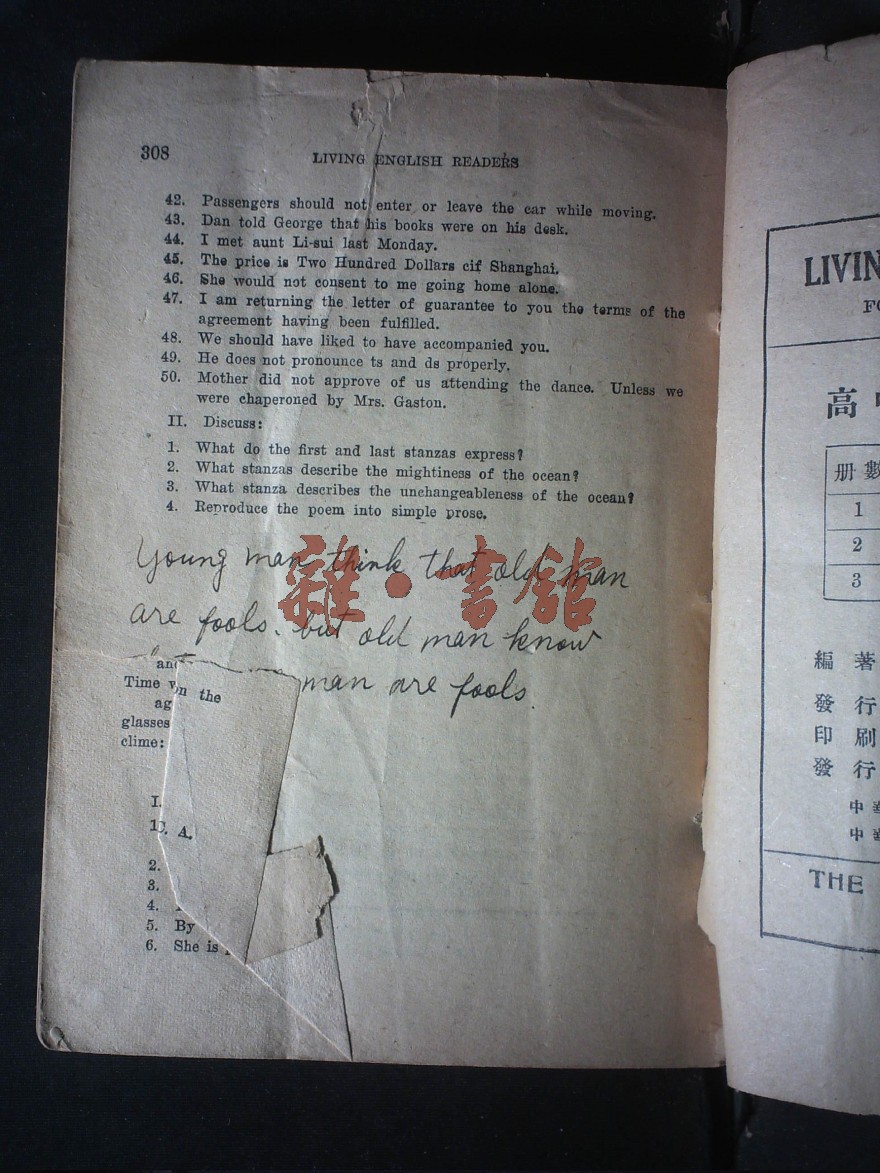 308
LIVING ENGLISH READERS
42. Passengers should not enter or leave the car while moving.
43. Dan told George that his books were on his desk.
44. I met aunt Li-sui last Monday.
45. The price is Two Hundred Dollars cif Shanghai.
46. She would not consent to me going home alone.
47. I am returning the letter of guarantee to you the terms of the
agreement having been fulfilled.
48. We should have liked to have accompanied you.
49. He does not pronounce ts and ds properly.
50. Mother did not approve of us attending the dance. Unless we
were chaperoned by Mrs. Gaston.
II. Discuss:
1. What do the first and last stanzas express?
2. What stanzas describe the mightiness of the ocean?
3. What stanza describes the unchangeableness of the ocean?
4. Reproduce the poem into simple prose.
雜·書館
Young man think that old man
are fools. but old man know
man are fools.
Time
the
glasses
clime:
I.
A.
2.
3.
4.
5. By
6. She is
LIVIN
高
册數
1
2
3
編著
發行
印刷
發行
中
中
THE